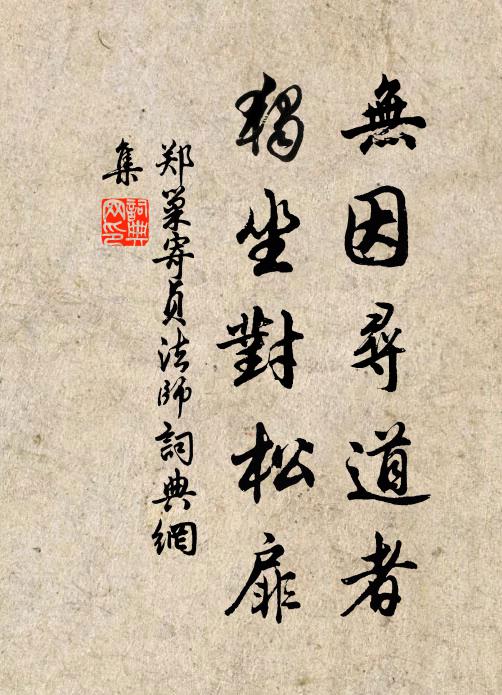 無因尋道者
獨坐對松扉
郑巢寄貞法師詞典網
集
詞典
网印